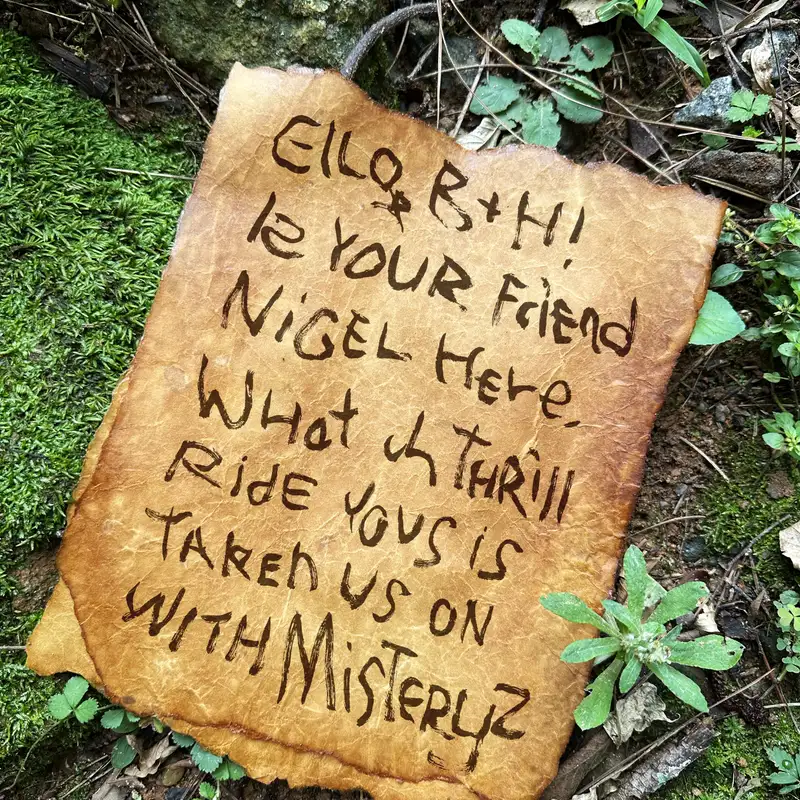 EllO, B+H!
Iz YOUR FriEnd
NiGEL HEre.
WHat uh THRill
RidE YOUS is
TAKEn US ON
WITH MisTERyz